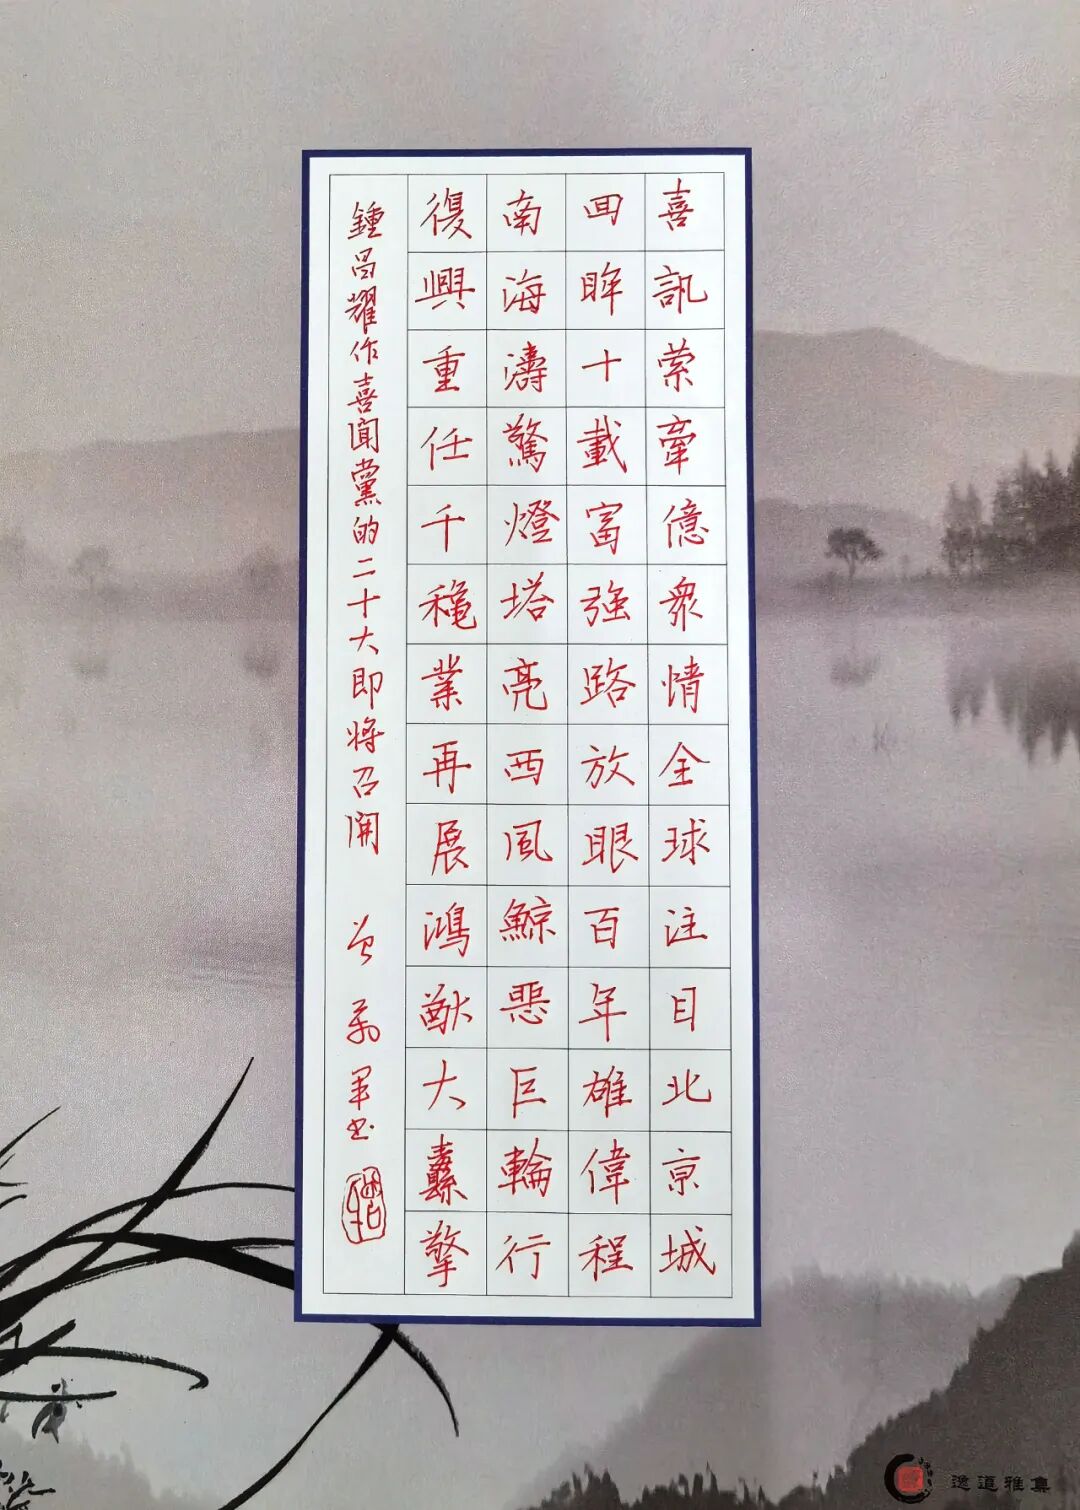 喜訊萦牽億衆情全球注目北京城
回眸十載富強路放眼百年雄偉程
南海濤驚燈塔亮西風鯨惡巨輪行
復興重任千穐業再展鴻猷大纛擎
鍾昌耀作喜聞黨的二十大即將召開 曾萬軍书
逸道雅集